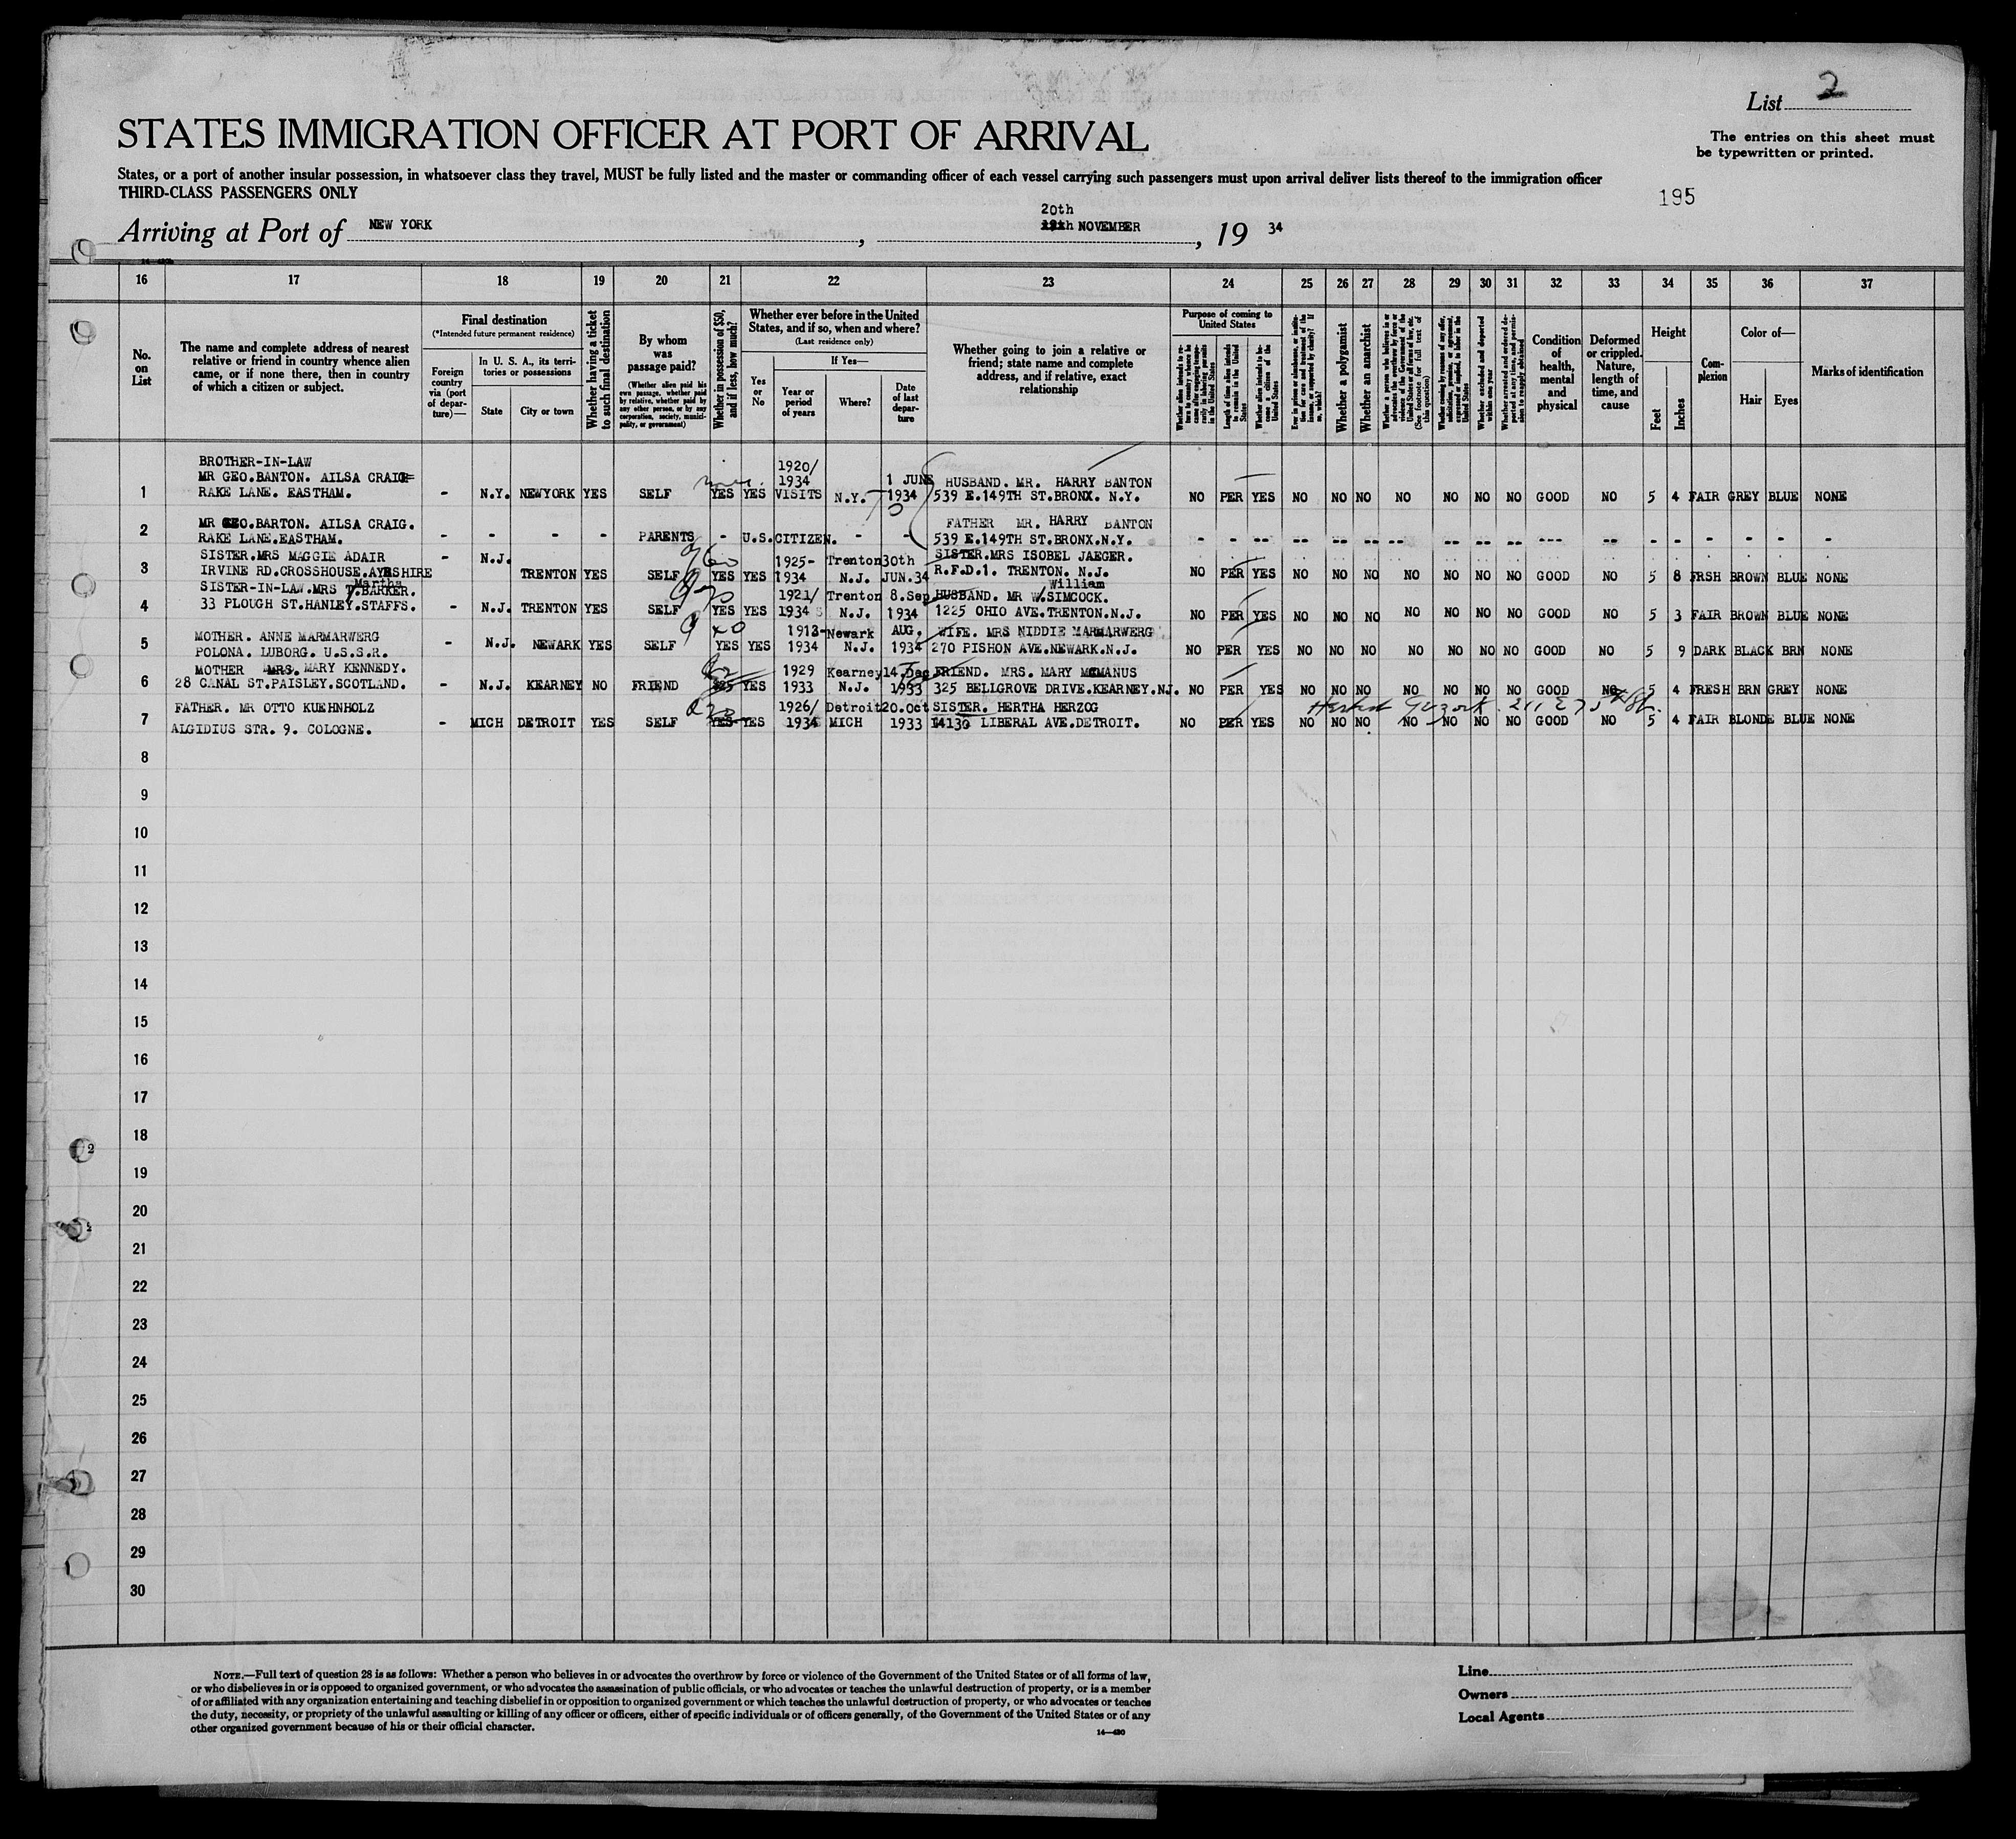 List 2
STATES IMMIGRATION OFFICER AT PORT OF ARRIVAL
The entries on this sheet must
be typewritten or printed.
States, or a port of another insular possession, in whatsoever class they travel, MUST be fully listed and the master or commanding officer of each vessel carrying such passengers must upon arrival deliver lists thereof to the immigration officer
THIRD-CLASS PASSENGERS ONLY
195
20th
Arriving at Port of NEW YORK, NOVEMBER, 19 34
16 17 18 19 20 21 22 23 24 25 26 27 28 29 30 31 32 33 34 35 36 37
No. on List
The name and complete address of nearest
relative or friend in country whence alien
came, or if none there, then in country
of which a citizen or subject.
Final destination
(*Intended future permanent residence)
Foreign country via (port of departure)—
In U. S. A., its territories or possessions
State
City or town
Whether having a ticket to such final destination
By whom was passage paid?
(Whether alien paid his own passage, whether paid by relative, whether paid by any other person, or by any corporation, society, municipality, or government)
Whether in possession of $50, and if less, how much?
Whether ever before in the United States, and if so, when and where?
(Last residence only)
Yes or No
If Yes—
Year or period of years
Where?
Date of last departure
Whether going to join a relative or
friend; state name and complete
address, and if relative, exact
relationship
Purpose of coming to United States
Length of time alien intends to remain in the United States
Whether alien intends to become a citizen of the United States
Whether a polygamist
Whether an anarchist
Whether excluded and deported within one year
Condition of health, mental and physical
Deformed or crippled. Nature, length of time, and cause
Height
Feet
Inches
Complexion
Color of—
Hair
Eyes
Marks of identification
BROTHER-IN-LAW 1920/
MR GEO.BANTON. AILSA CRAIG= 1934 1 JUNE HUSBAND. MR. HARRY BANTON
1 RAKE LANE. EASTHAM. - N.Y. NEWYORK YES SELF YES YES VISITS N.Y. 1934 539 E.149TH ST.BRONX. N.Y. NO PER YES NO NO NO NO NO NO NO GOOD NO 5 4 FAIR GREY BLUE NONE
MR GEO.BARTON. AILSA CRAIG. FATHER MR. HARRY BANTON
2 RAKE LANE.EASTHAM. - - - - PARENTS - U.S.CITIZEN. - - 539 E.149TH ST.BRONX.N.Y. - - - -- -- -- -- -- -- -- --- -- - - - - - -
SISTER.MRS MAGGIE ADAIR - N.J. 1925- Trenton 30th SISTER.MRS ISOBEL JAEGER.
3 IRVINE RD.CROSSHOUSE.AYRSHIRE TRENTON YES SELF YES YES 1934 N.J. JUN.34 R.F.D.1. TRENTON. N.J. NO PER YES NO NO NO NO NO NO NO GOOD NO 5 8 FRSH BROWN BLUE NONE
Martha William
SISTER-IN-LAW.MRS T.BARKER. 1921/ Trenton 8.Sep HUSBAND. MR W.SIMCOCK.
4 33 PLOUGH ST.HANLEY.STAFFS. - N.J. TRENTON YES SELF YES YES 1934 N.J. 1934 1225 OHIO AVE.TRENTON.N.J. NO PER YES NO NO NO NO NO NO NO GOOD NO 5 3 FAIR BROWN BLUE NONE
MOTHER. ANNE MARMARWERG 1913- Newark AUG. WIFE. MRS NIDDIE MARMARWERG
5 POLONA. LUBORG. U.S.S.R. - N.J. NEWARK YES SELF YES YES 1934 N.J. 1934 270 PISHON AVE.NEWARK.N.J. NO PER YES NO NO NO NO NO NO NO GOOD NO 5 9 DARK BLACK BRN NONE
MOTHER MRS. MARY KENNEDY. 1929 Kearney 14.Dec FRIEND. MRS. MARY MCMANUS
6 28 CANAL ST.PAISLEY.SCOTLAND. - N.J. KEARNEY NO FRIEND $25 YES 1933 N.J. 1933 325 BELLGROVE DRIVE.KEARNEY.NJ. NO PER YES NO NO NO NO NO NO NO GOOD NO 5 4 FRESH BRN GREY NONE
FATHER. MR OTTO KUEHNHOLZ 1926/ Detroit 20.Oct SISTER. HERTHA HERZOG
7 ALGIDIUS STR. 9. COLOGNE. - MICH DETROIT YES SELF YES YES 1934 MICH 1933 14130 LIBERAL AVE.DETROIT. NO PER YES NO NO NO NO NO NO NO GOOD NO 5 4 FAIR BLONDE BLUE NONE
8
9
10
11
12
13
14
15
16
17
18
19
20
21
22
23
24
25
26
27
28
29
30
NOTE.—Full text of question 28 is as follows: Whether a person who believes in or advocates the overthrow by force or violence of the Government of the United States or of all forms of law,
or who disbelieves in or is opposed to organized government, or who advocates the assassination of public officials, or who advocates or teaches the unlawful destruction of property, or is a member
of or affiliated with any organization entertaining and teaching disbelief in or opposition to organized government or which teaches the unlawful destruction of property, or who advocates or teaches
the duty, necessity, or propriety of the unlawful assaulting or killing of any officer or officers, either of specific individuals or of officers generally, of the Government of the United States or of any
other organized government because of his or their official character.
14—430
Line
Owners
Local Agents